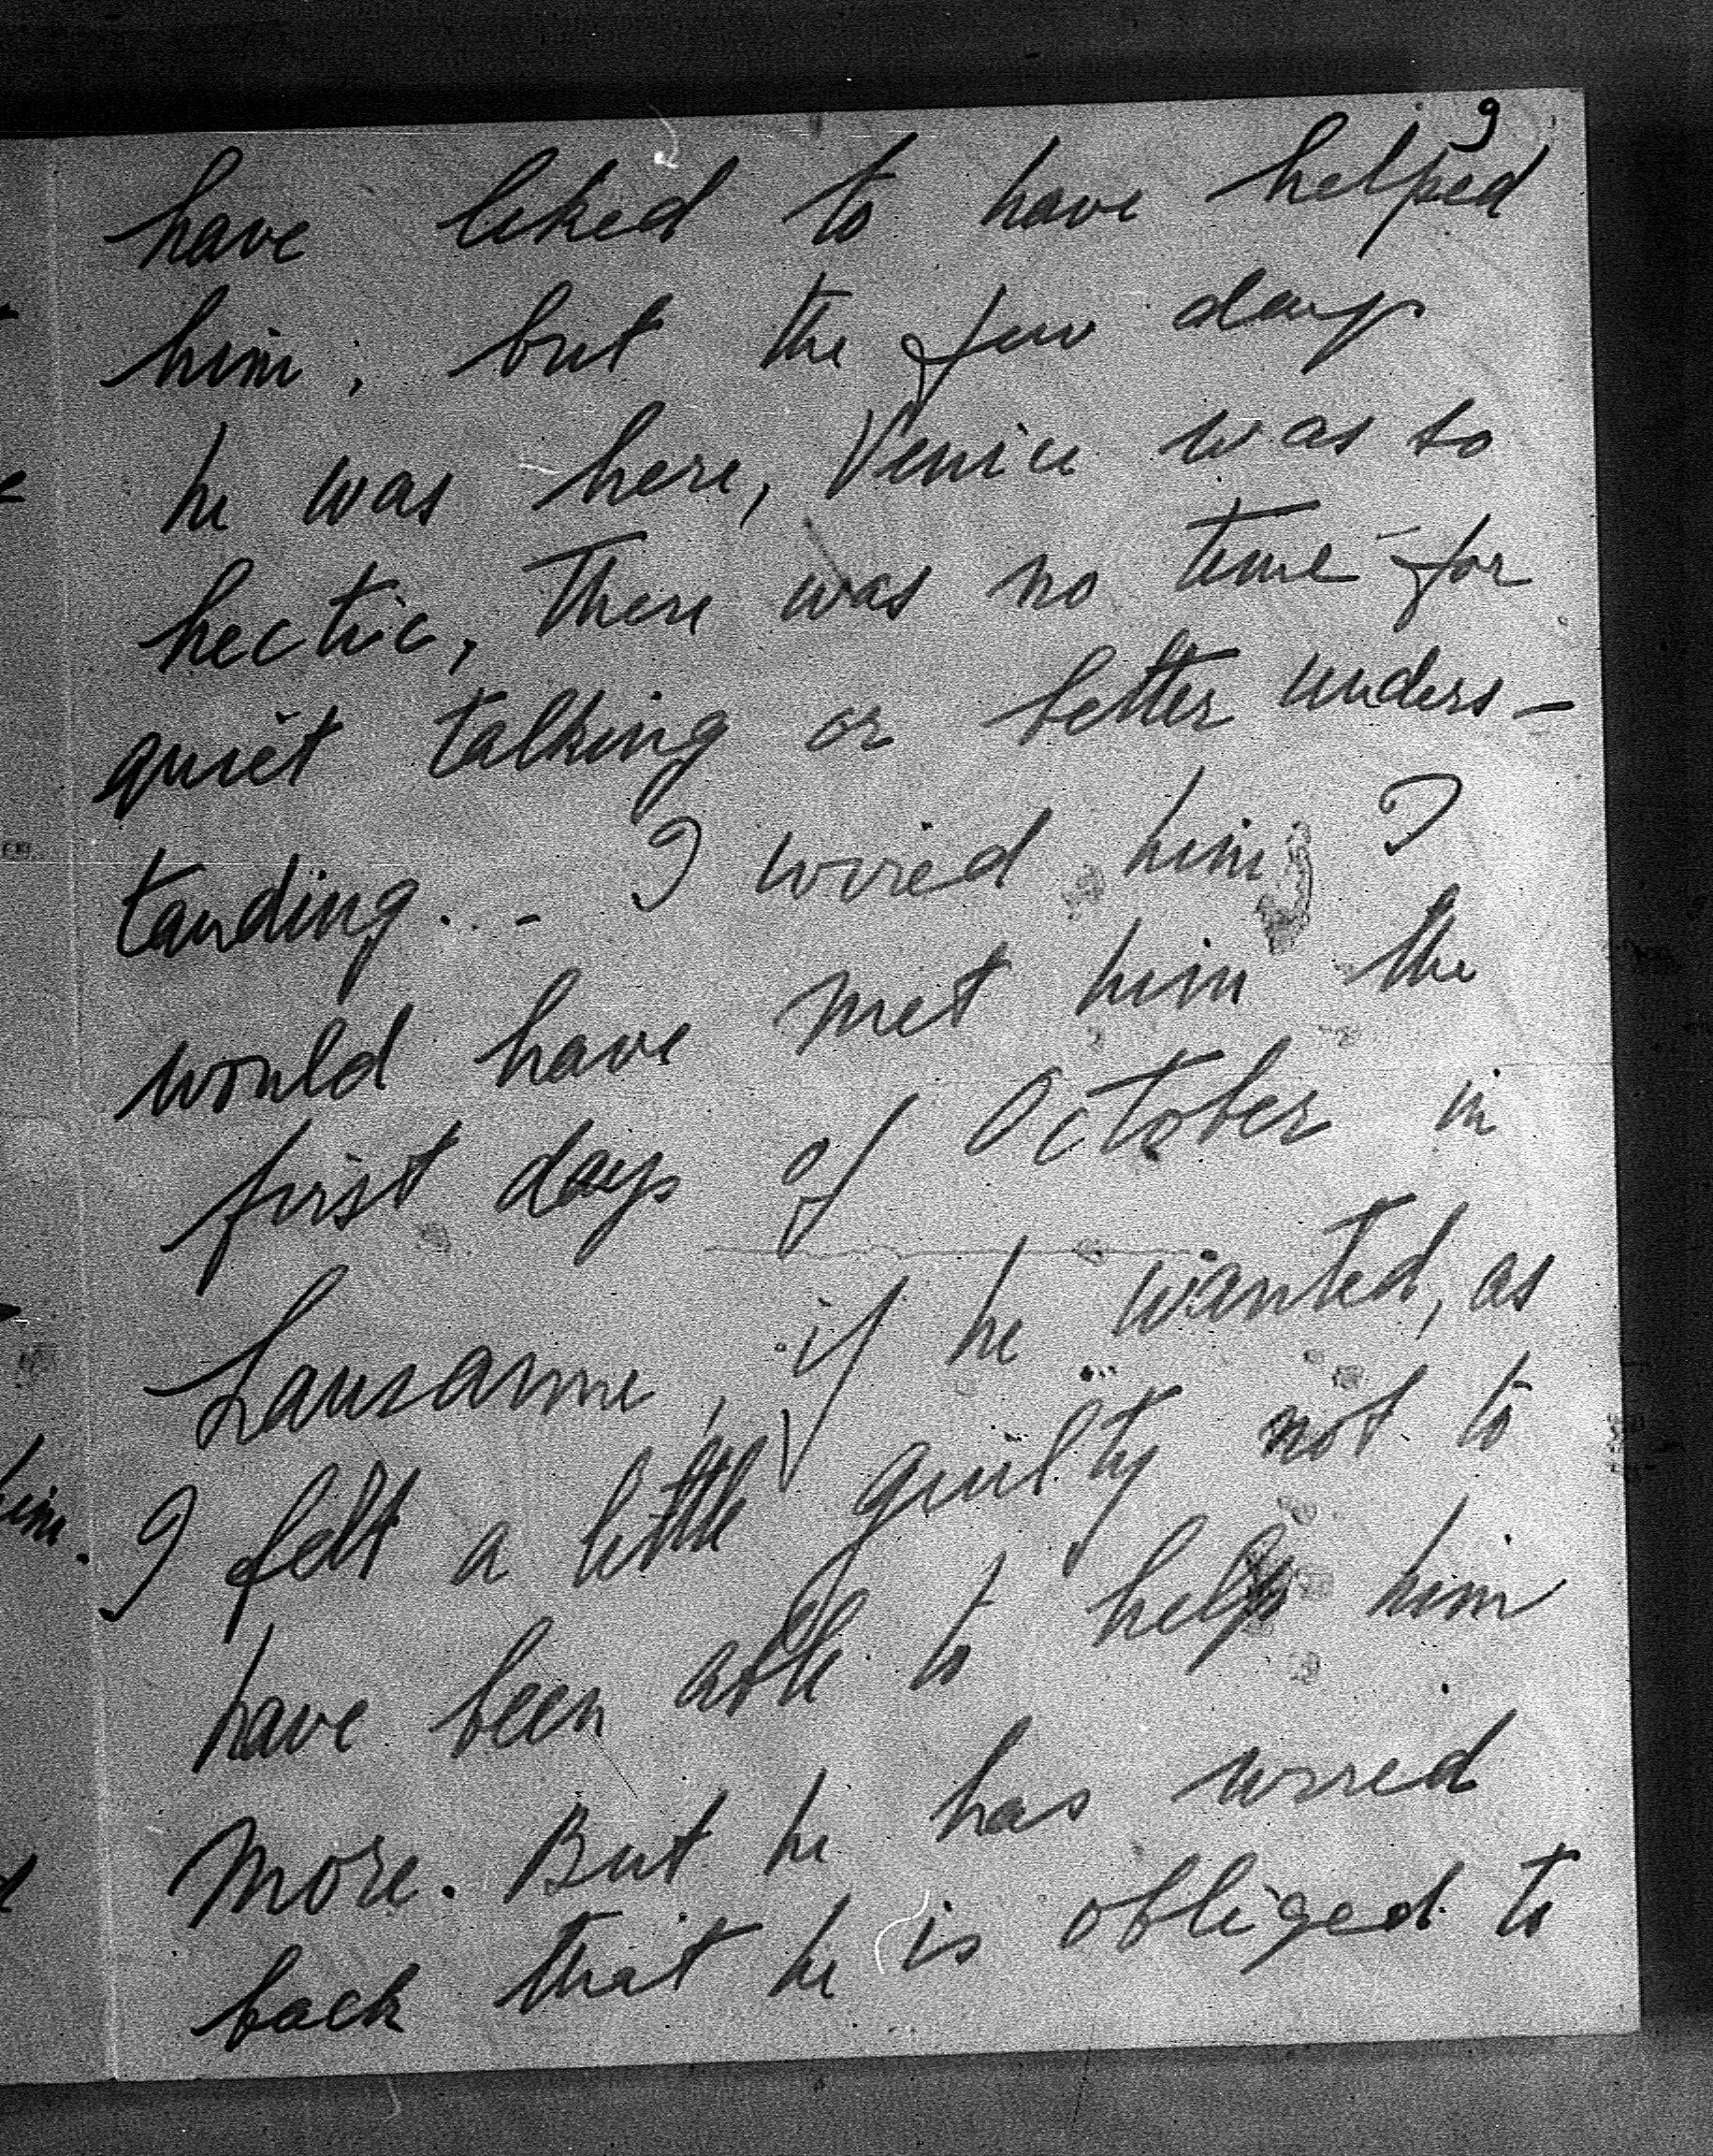 9
have liked to have helped
him; but the few days
he was here, Venice was so
hectic, there was no time for
quiet talking or better unders-
tanding... - I wired him I
would have met him the
first days of October in
Lausanne, if he wanted, as
I felt a little guilty not to
have been able to help him
more. But he has wired
back that he is obliged to
him.